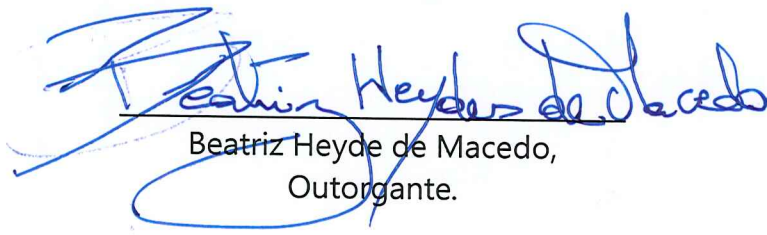 Beatriz Heyde de Macedo
Beatriz Heyde de Macedo,
Outorgante.